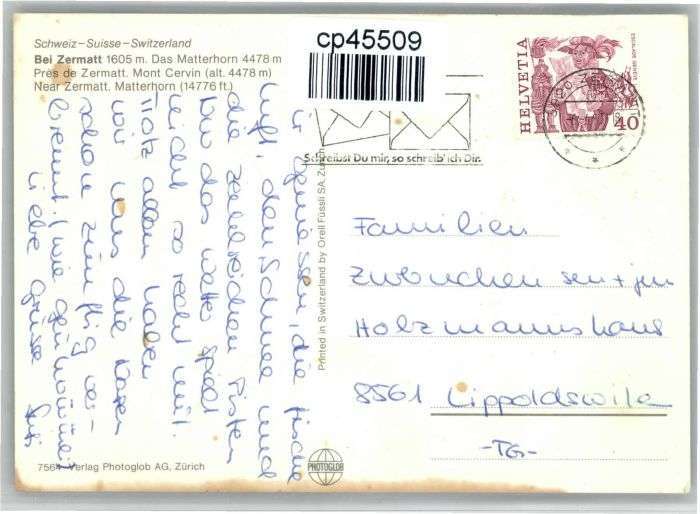 Schweiz–Suisse–Switzerland
Bei Zermatt 1605 m. Das Matterhorn 4478 m
Près de Zermatt. Mont Cervin (alt. 4478 m)
Near Zermatt. Matterhorn (14776 ft.)
cp45509
HELVETIA
ESCALADE GENEVE
40
Schreibst Du mir, so schreib' ich Dir.
geniessen, die frische
Luft, den Schnee und
die zahlreichen Pisten
Nur das Wetter spielt
nicht so recht mit.
Trotz allem haben
wir uns die Nasen
schon zünftig ver-
brennt! wie
Liebe Grüsse
Printed in Switzerland by Orell Füssli SA, Zürich
Familien
Zwbuchen sen + jun
Holzmannshaus
8561 Lippoldswile
-TG-
7564 Verlag Photoglob AG, Zürich
PHOTOGLOB